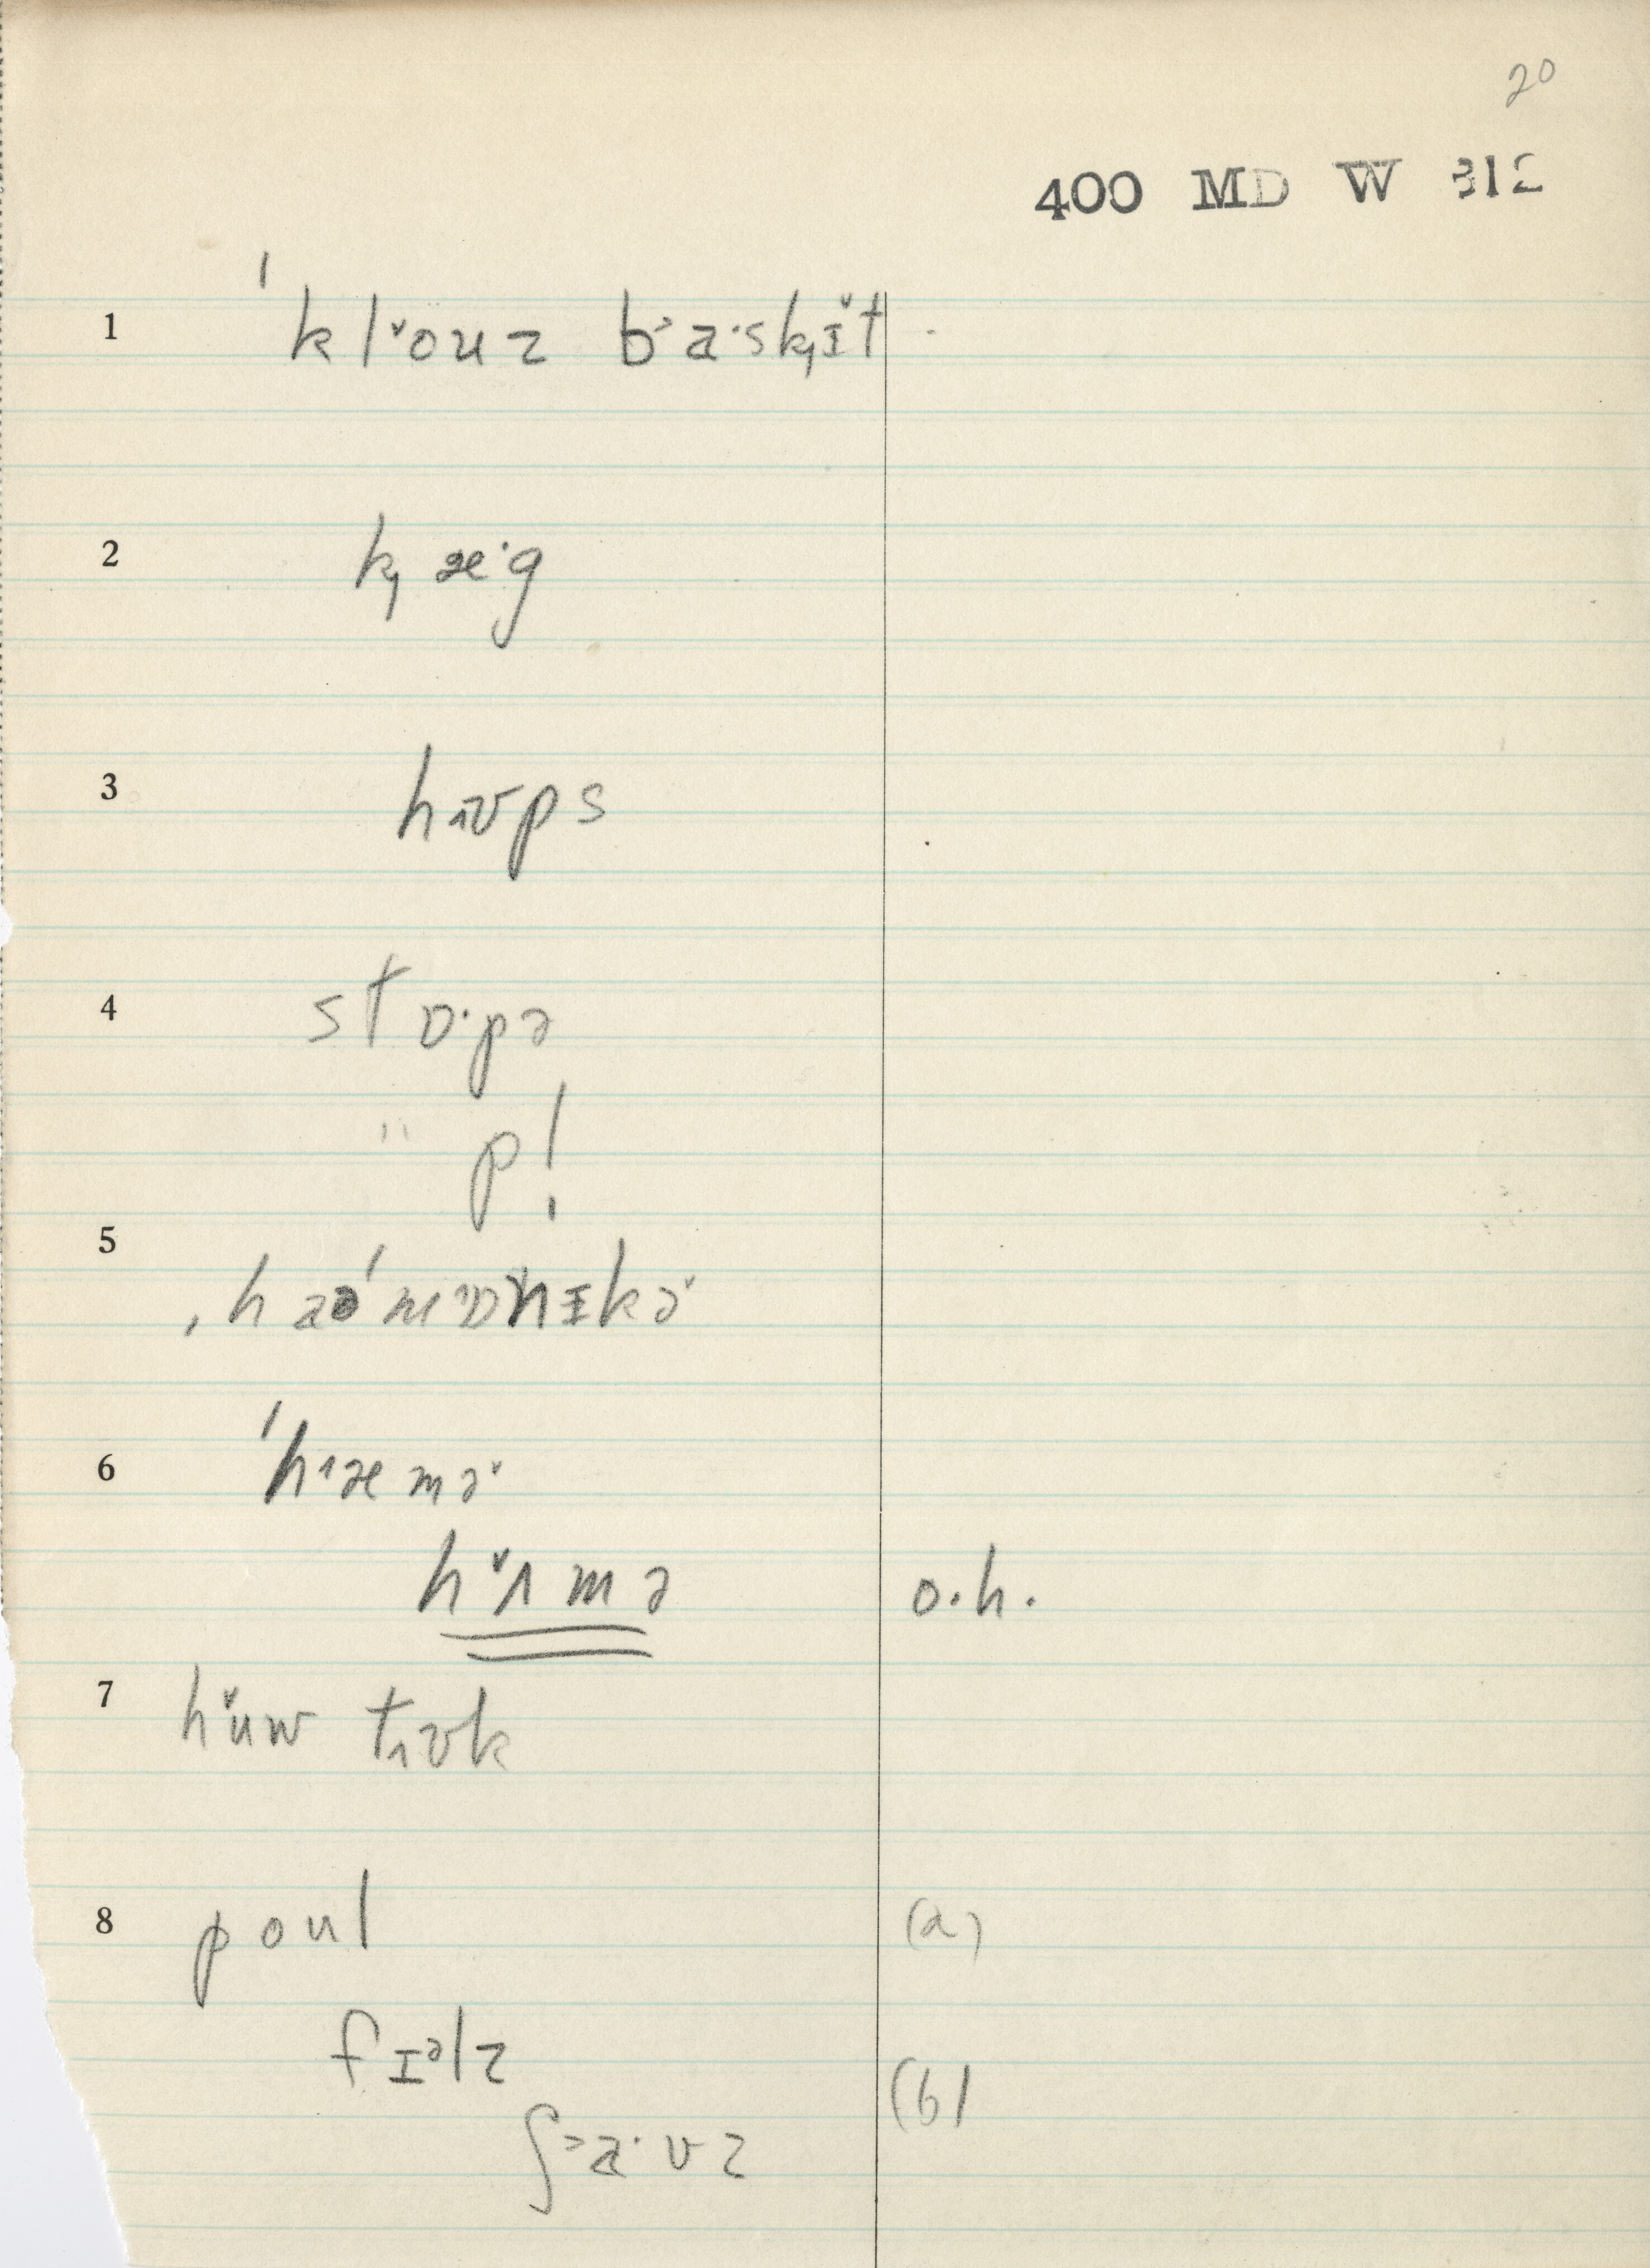 20
400 MD W 312
1 ˈklˇouz b˃a·sk̡ɪ̆t
2 k̡æ·g
3 hʊps
4 stɒ·pə
" p!
5 ˌhaəˈmɒnɪkə˅
6 ˈhæmə˅
hˇʌmə o.h.
7 hˇuw tʊk
8 poul (a)
fɪᵊlz (b)
ʃ˃a·vz